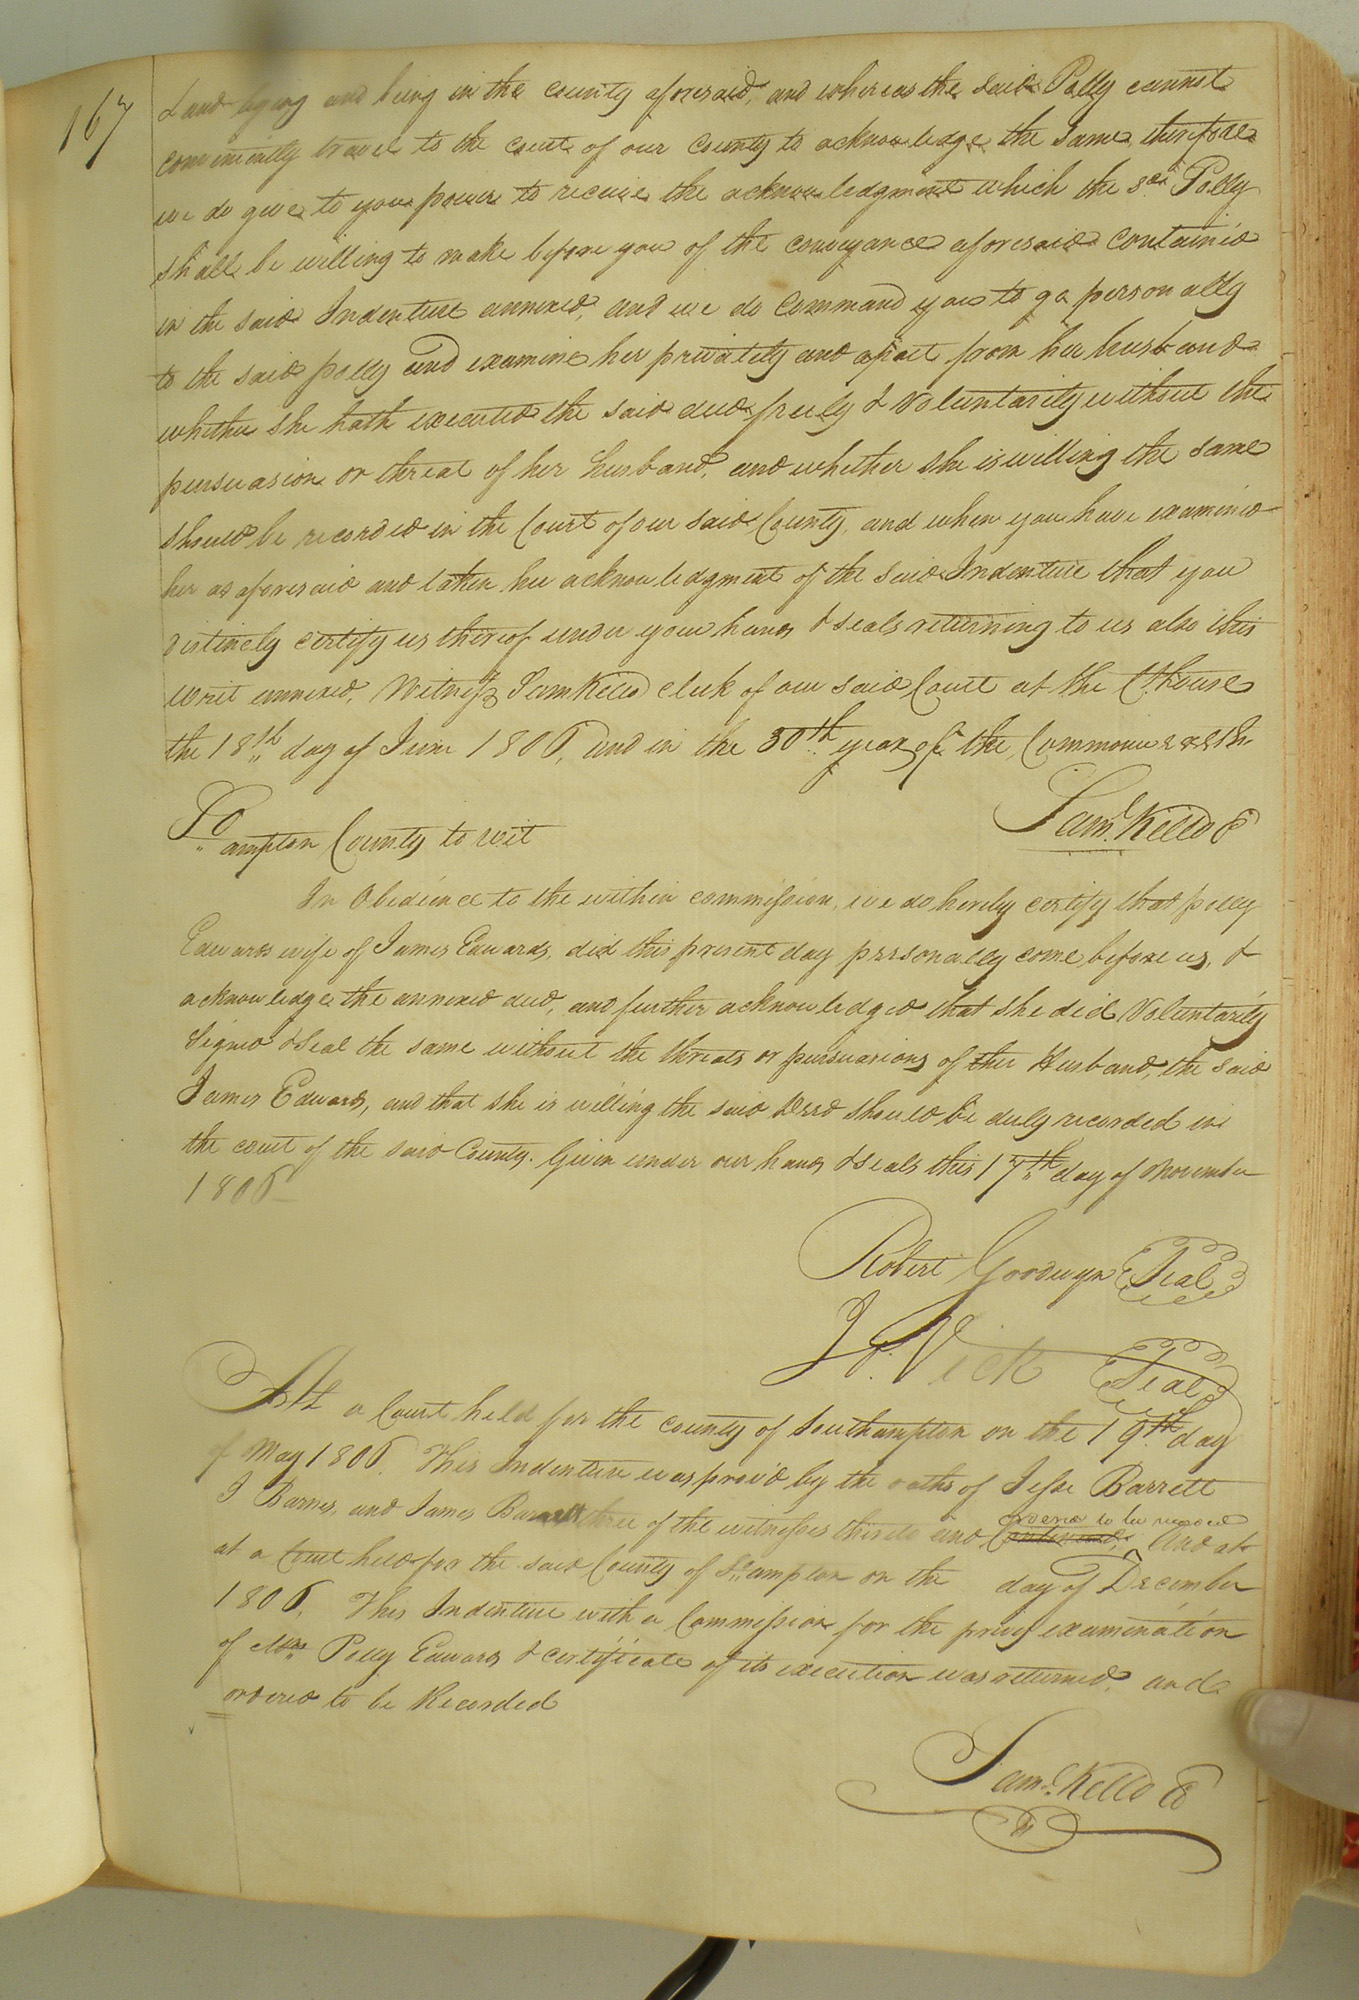 167
Land lying and being in the county aforesaid, and whereas the said Polly cannot
conveniently travel to the court of our County to acknowledge the same, therefore
we do give to you power to receive the acknowledgment which the sd. Polly
shall be willing to make before you of the conveyance aforesaid contain'd
in the said Indenture annexed, and we do command you to go personally
to the said polly and examine her privately and apart from her husband
whether she hath executed the said deed freely & voluntarily without the
persuasion or threat of her husband, and whether she is willing the same
should be recorded in the Court of our said County, and when you have examined
her as aforesaid and taken her acknowledgment of the said Indenture that you
distinctly certify us thereof under your hands & seals returning to us also this
writ annexed. Witness Sam Kello clerk of our said Court at the Ct. house
the 18th day of June 1806, and in the 30th year of the Commonwealth
Saml. Kello C
So ampton County to wit
In Obedience to the within commission, we do hereby certify that polly
Edwards wife of James Edwards, did this present day personally come before us, &
acknowledge the annexed deed, and further acknowledged that she did Voluntarily
Signed & Seal the same without the threats or persuasions of her Husband, the said
James Edwards, and that she is willing the said Deed should be duly recorded in
the court of the said County. Given under our hands & seals this 17th day of November
1806
Robert Goodwyn Seal
J. Vick Seal
At a Court held for the county of Southampton on the 19th day
of May 1806. This Indenture was prov'd by the oaths of Jesse Barrett
J Barnes, and James Barrett three of the witnesses thereto and
ordered to be record
And at
at a Court held for the said County of So. ampton on the day of December
1806. This Indenture with a Commission for the privy examination
of Mrs. Polly Edwards & certificate of its execution was returned, and
ordered to be Recorded
Saml. Kello C